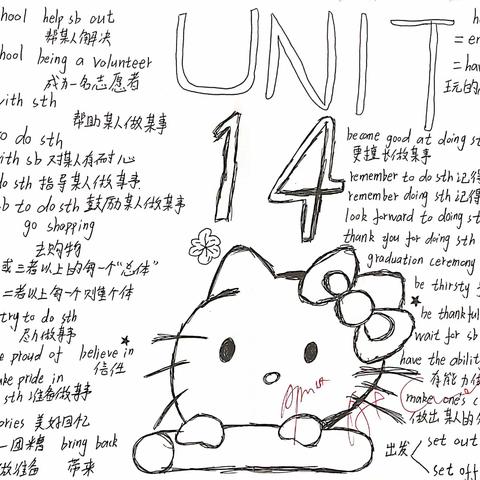 UNIT
14
hool help sb out
帮某人解决
hool being a volunteer
成为一名志愿者
with sth
帮助某人做某事
to do sth
with sb 对某人有耐心
do sth 指导某人做某事.
b to do sth 鼓励某人做某事
go shopping
去购物
或三者以上的每一个"总体"
二者以上每一个对单个体
try to do sth
尽力做某事
e proud of believe in
信任
ake pride in
sth 准备做某事
ories 美好回忆
一团糟 bring back
做准备 带来
= 
= ha
become good at doing st
更擅长做某事
remember to do sth 记得
remember doing sth 记得
look forward to doing st
thank you for doing sth
graduation ceremony
be thirsty
be thankful
wait for sb
have the ability
有能力做
make one's c
做出某人的
出发
set out
set off